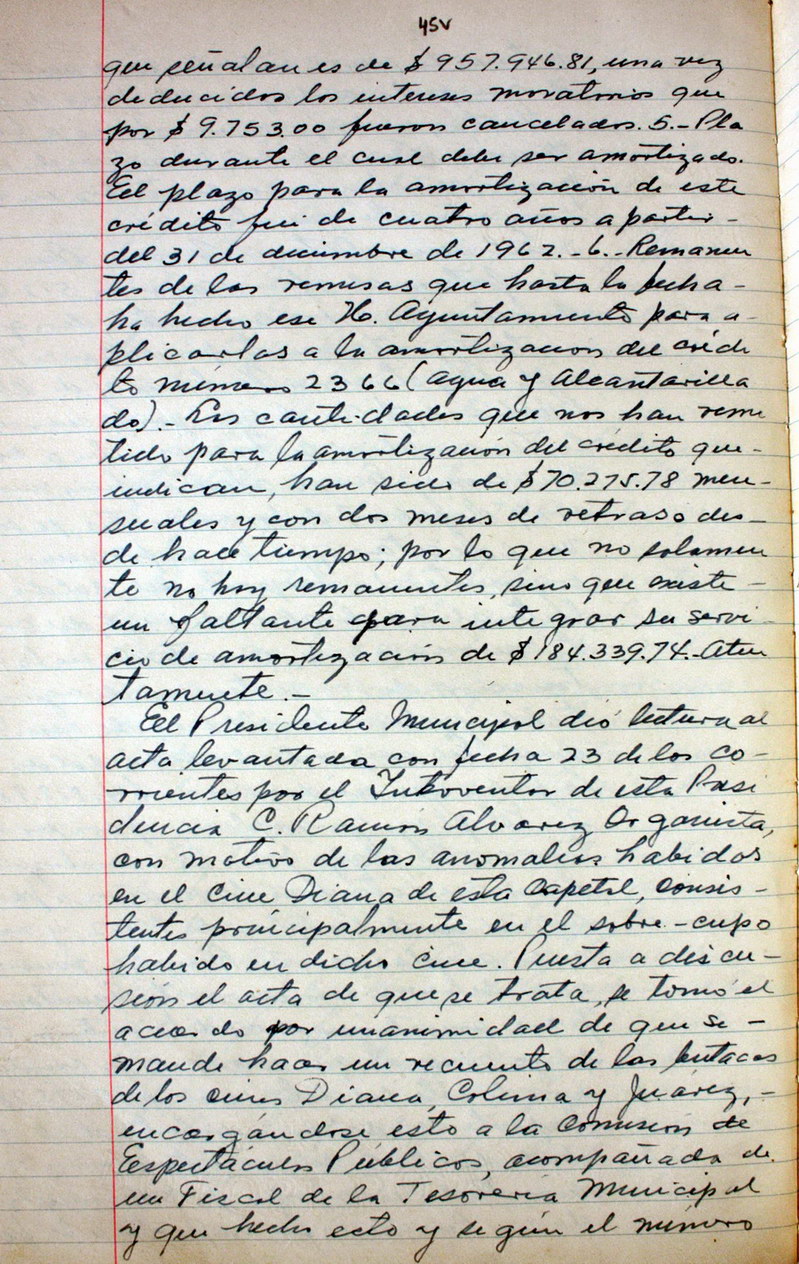 45v
que señalan es de $ 957.946.81, una vez
deducidos los intereses moratorios que
por $ 9.753.00 fueron cancelados. 5.- Pla
zo durante el cual debe ser amortizado.
El plazo para la amortización de este
crédito fué de cuatro años a partir -
del 31 de diciembre de 1962. - 6.- Remanen
tes de las remesas que hasta la fecha -
ha hecho ese H. Ayuntamiento para a-
plicarlas a la amortización del crédi
to número 2366 (agua y Alcantarilla
do). - Las cantidades que nos han remi
tido para la amortización del crédito que -
indican, han sido de $70.275.78 men-
suales y con dos meses de retraso des-
de hace tiempo; por lo que no solamen
te no hay remanentes, sino que existe -
un faltante para integrar su servi-
cio de amortización de $184.339.74.- Aten
tamente. -
El Presidente Municipal dió lectura al
acta levantada con fecha 23 de los co-
rrientes por el Interventor de esta Presi
dencia C. Ramón Alvarez Organista,
con motivo de las anomalías habidas
en el cine Diana de esta Capital, consis-
tentes principalmente en el sobre-cupo
habido en dicho cine. Puesta a discu-
sión el acta de que se trata, se tomó el
acuerdo por unanimidad de que se -
mande hacer un recuento de las butacas
de los cines Diana, Colima y Juárez, -
encargándose esto a la Comisión de
Espectáculos Públicos, acompañada de
un Fiscal de la Tesorería Municipal
y que hecho esto y según el número